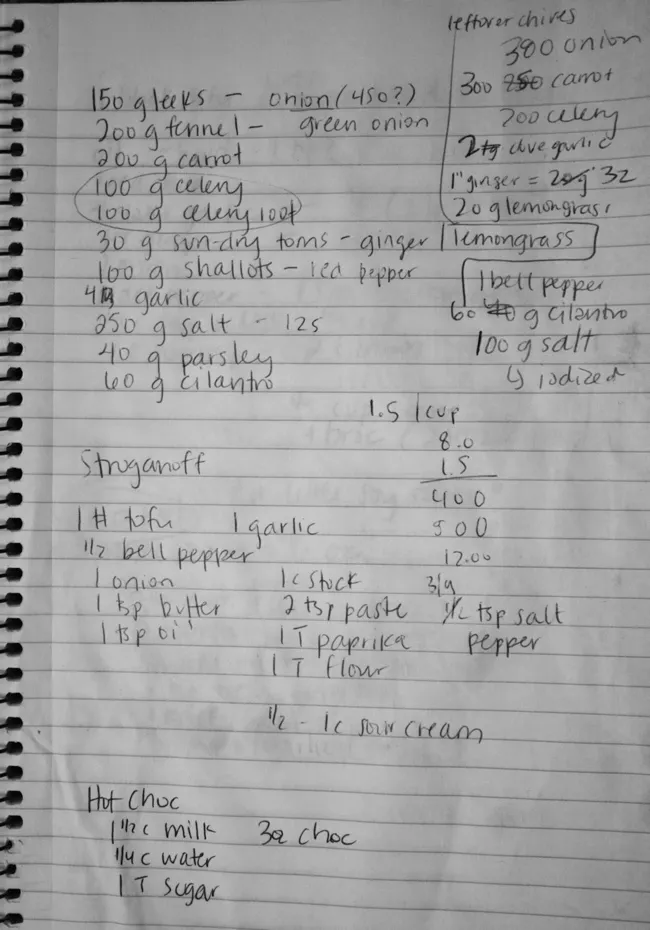 leftover chives
380 onion
300 250 carrot
200 celery
2 clove garlic
1" ginger = 20g 32
20 g lemongrass
1 bell pepper
60 40 g cilantro
100 g salt
↳ iodized
150 g leeks - onion (450?)
200 g fennel - green onion
200 g carrot
100 g celery
100 g celery root
30 g sun-dry toms - ginger | lemongrass
100 g shallots - red pepper
4 garlic
250 g salt - 125
40 g parsley
60 g cilantro
1.5 | cup
8.0
1.5
400
800
12.00
Stroganoff
1 # tofu 1 garlic
1/2 bell pepper
1 onion 1 c stock
1 tsp butter 2 tsp paste 1/2 tsp salt
1 tsp oil 1 T paprika pepper
1 T flour
1/2 - 1c sour cream
Hot Choc
1 1/2 c milk 3oz choc
1/4 c water
1 T sugar